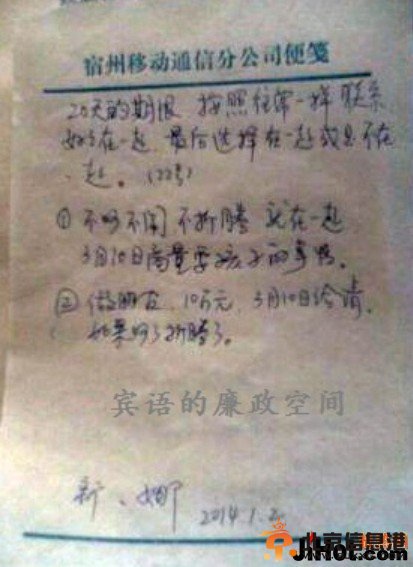 宿州移动通信分公司便笺
20天的期限 按照往常一样 联系
好好在一起 最后选择在一起或是不在
一起。(22号)
① 不吵不闹 不折腾 就在一起
3月10日商量要孩子的事情。
② 做朋友 10万元 3月10日给清
如果吵了折腾了。
宾语的廉政空间
新、娜
2014.1.2
京信息港
JiHot.com